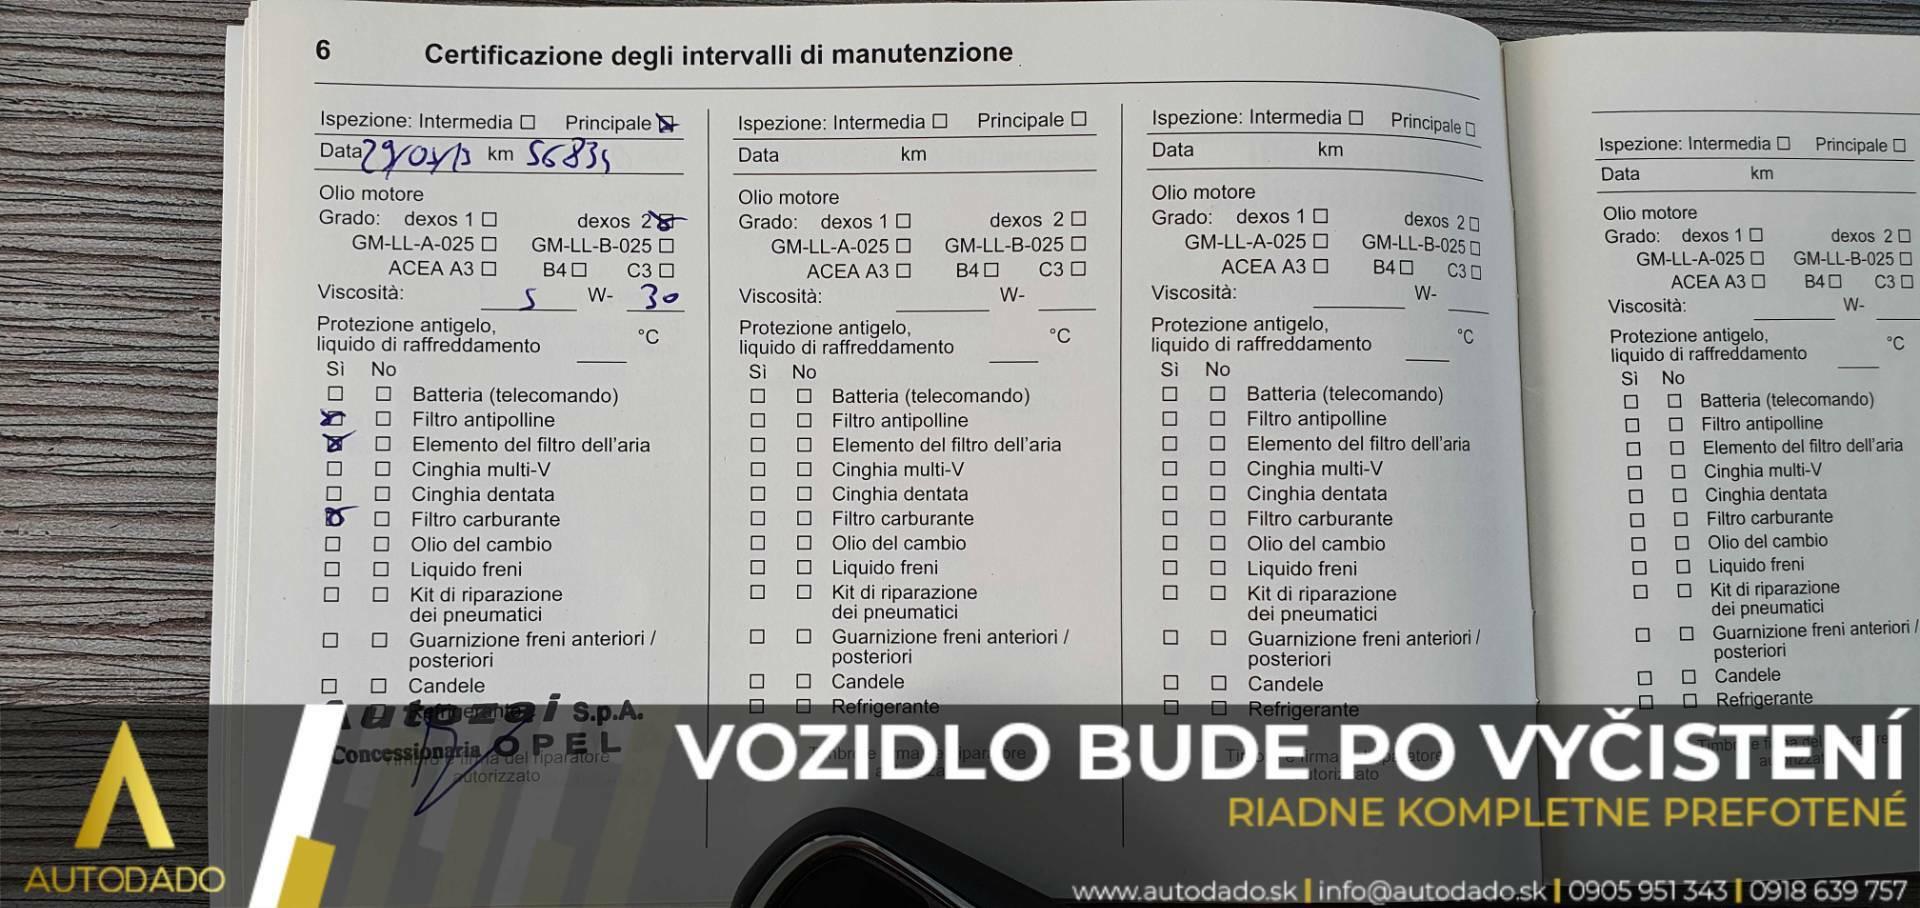 6 Certificazione degli intervalli di manutenzione
Ispezione: Intermedia Principale
Data km
Olio motore
Grado: dexos 1 dexos 2
GM-LL-A-025 GM-LL-B-025
ACEA A3 B4 C3
Viscosità: 5 W- 30
Protezione antigelo,
liquido di raffreddamento °C
Sì No
Batteria (telecomando)
Filtro antipolline
Elemento del filtro dell'aria
Cinghia multi-V
Cinghia dentata
Filtro carburante
Olio del cambio
Liquido freni
Kit di riparazione
dei pneumatici
Guarnizione freni anteriori /
posteriori
Candele
Refrigerante
S.p.A.
Concessionaria OPEL
autorizzato
Ispezione: Intermedia Principale
Data km
Olio motore
Grado: dexos 1 dexos 2
GM-LL-A-025 GM-LL-B-025
ACEA A3 B4 C3
Viscosità: W-
Protezione antigelo,
liquido di raffreddamento °C
Sì No
Batteria (telecomando)
Filtro antipolline
Elemento del filtro dell'aria
Cinghia multi-V
Cinghia dentata
Filtro carburante
Olio del cambio
Liquido freni
Kit di riparazione
dei pneumatici
Guarnizione freni anteriori /
posteriori
Candele
Refrigerante
Ispezione: Intermedia Principale
Data km
Olio motore
Grado: dexos 1 dexos 2
GM-LL-A-025 GM-LL-B-025
ACEA A3 B4 C3
Viscosità: W-
Protezione antigelo,
liquido di raffreddamento °C
Sì No
Batteria (telecomando)
Filtro antipolline
Elemento del filtro dell'aria
Cinghia multi-V
Cinghia dentata
Filtro carburante
Olio del cambio
Liquido freni
Kit di riparazione
dei pneumatici
Guarnizione freni anteriori /
posteriori
Candele
Refrigerante
Ispezione: Intermedia Principale
Data km
Olio motore
Grado: dexos 1 dexos 2
GM-LL-A-025 GM-LL-B-025
ACEA A3 B4 C3
Viscosità: W-
Protezione antigelo,
liquido di raffreddamento °C
Sì No
Batteria (telecomando)
Filtro antipolline
Elemento del filtro dell'aria
Cinghia multi-V
Cinghia dentata
Filtro carburante
Olio del cambio
Liquido freni
Kit di riparazione
dei pneumatici
Guarnizione freni anteriori /
posteriori
Candele
Refrigerante
VOZIDLO BUDE PO VYČISTENÍ
RIADNE KOMPLETNE PREFOTENÉ
AUTODADO
www.autodado.sk | info@autodado.sk | 0905 951 343 | 0918 639 757